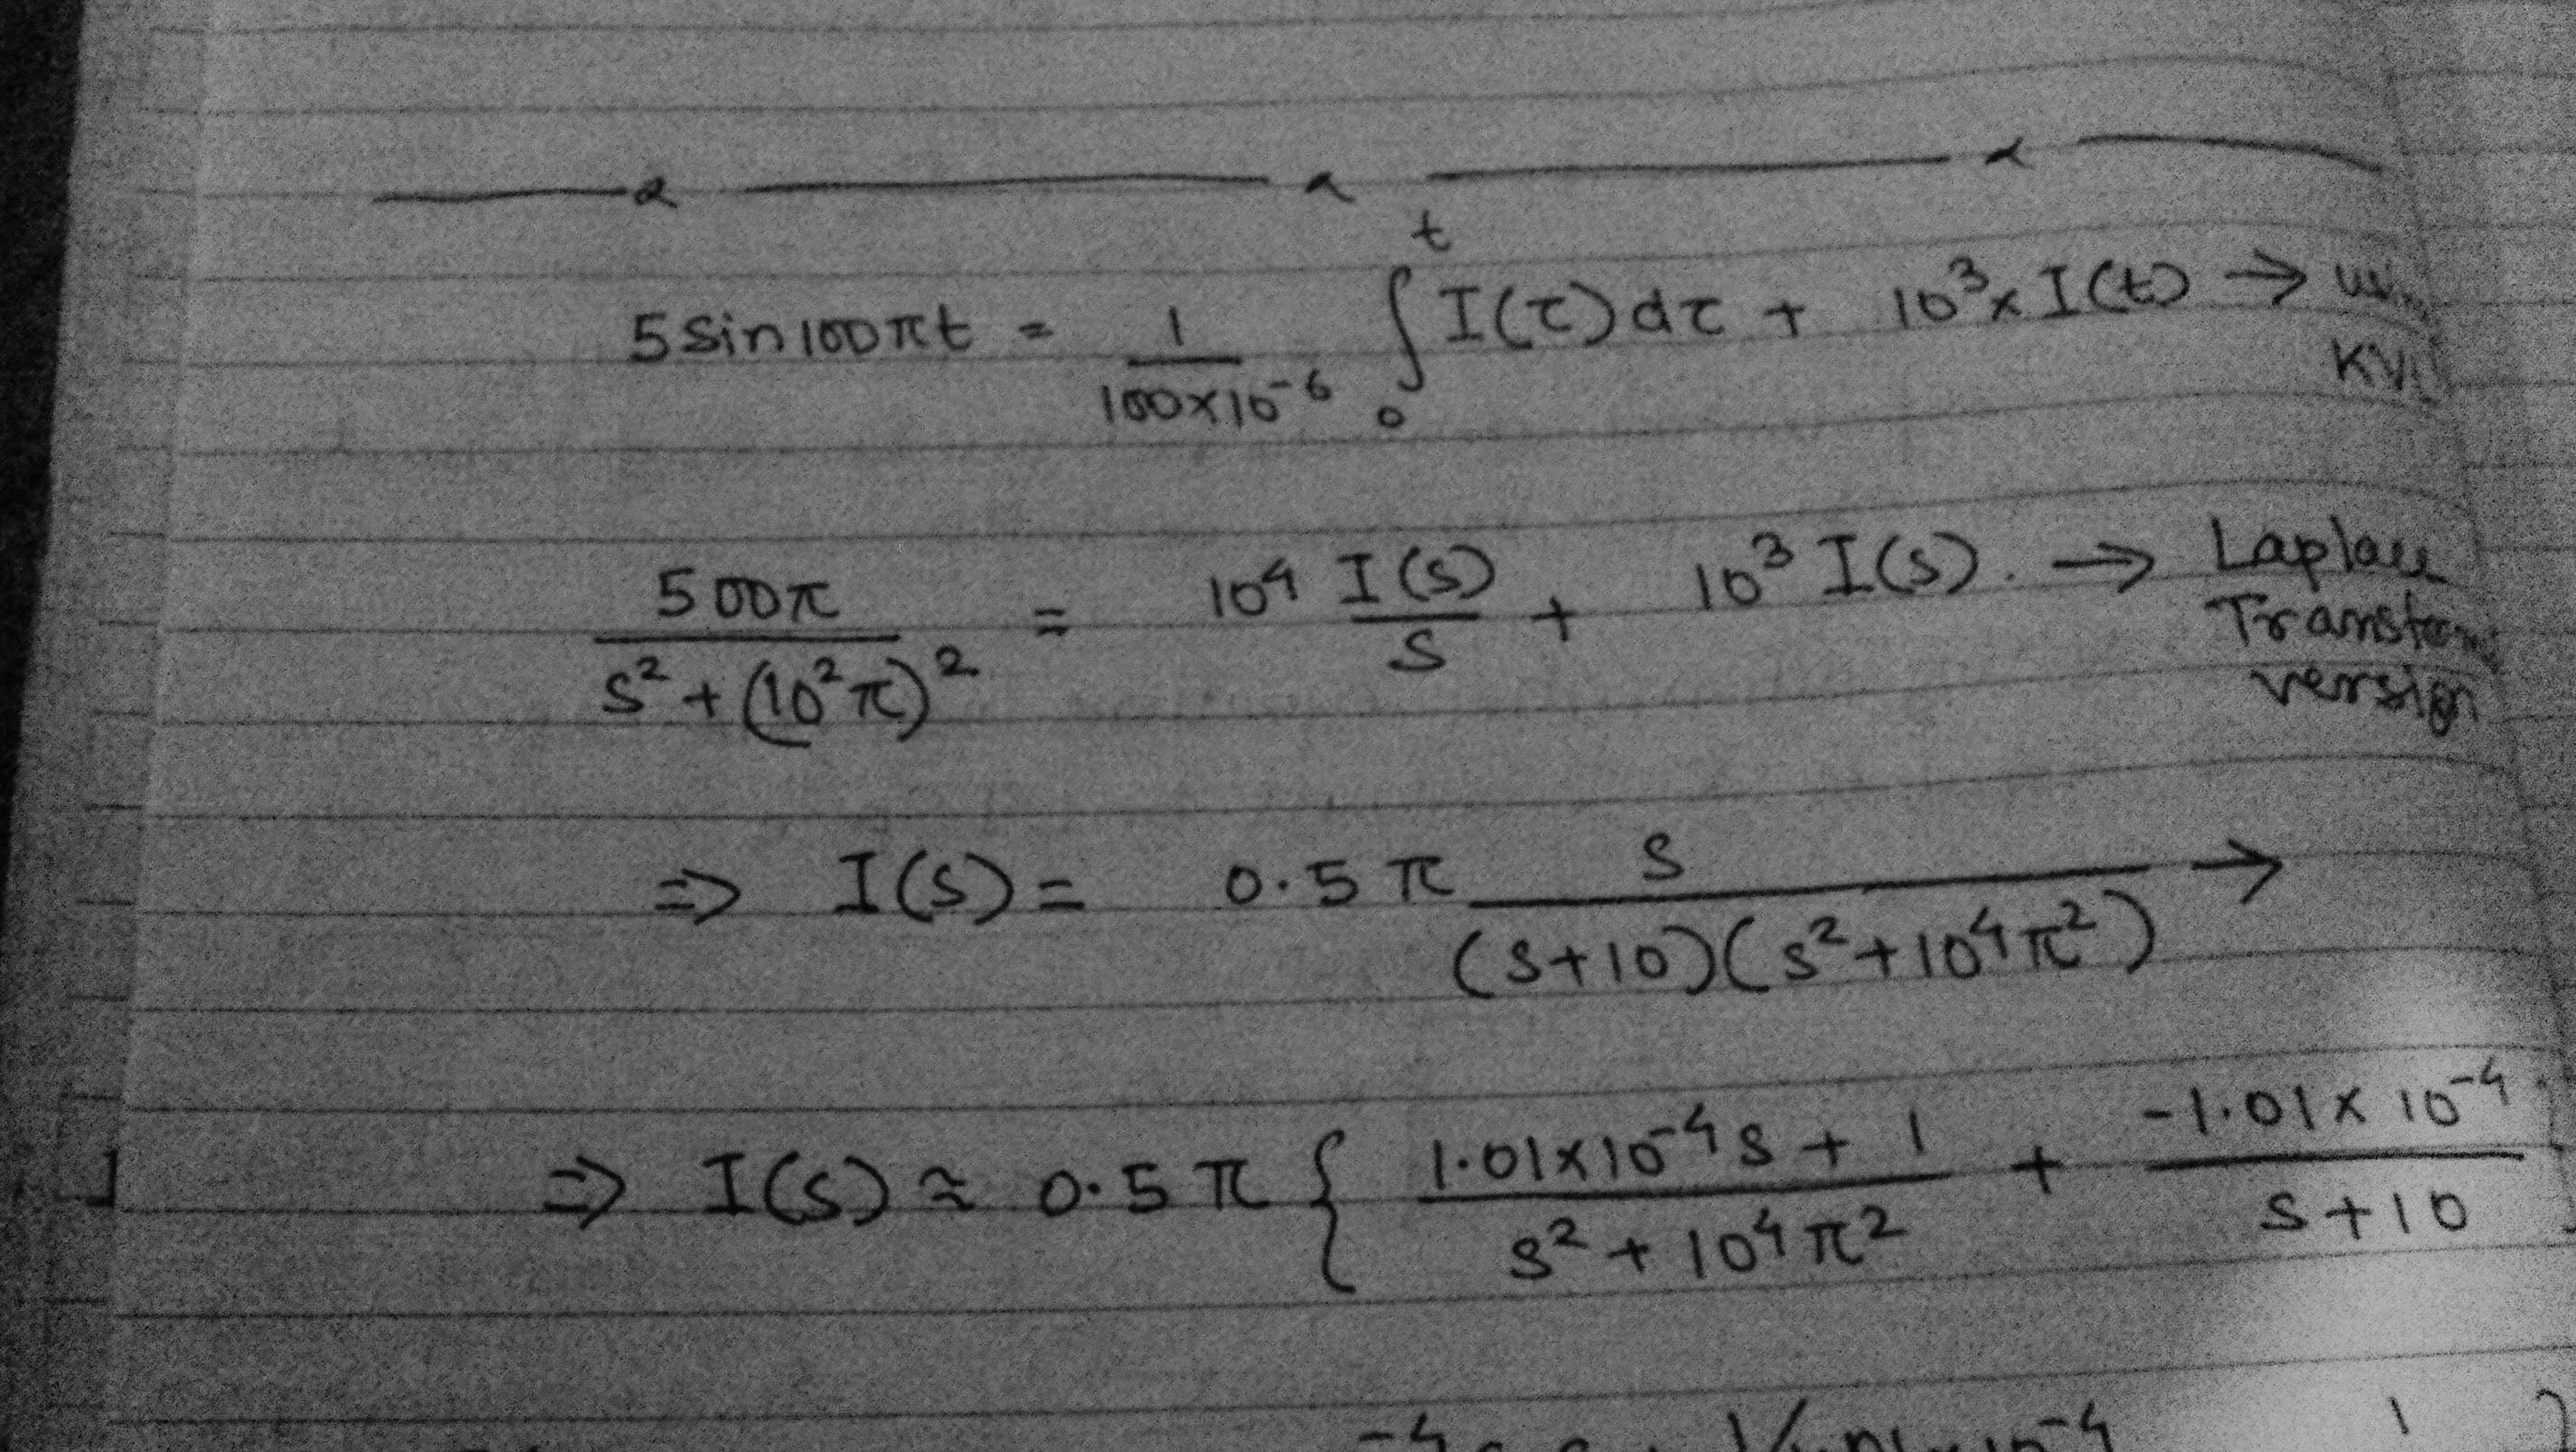 5 sin 100πt = 1/(100×10⁻⁶) ∫₀ᵗ I(τ)dτ + 10³× I(t) →
KVL
500π/(s²+(10²π)²) = 10⁴ I(s)/s + 10³ I(s). → Laplace
Transform
version
⇒ I(s) = 0.5π s/((s+10)(s²+10⁴π²)) →
⇒ I(s) ≈ 0.5π { (1.01×10⁻⁴s + 1)/(s²+10⁴π²) + (-1.01×10⁻⁴)/(s+10)